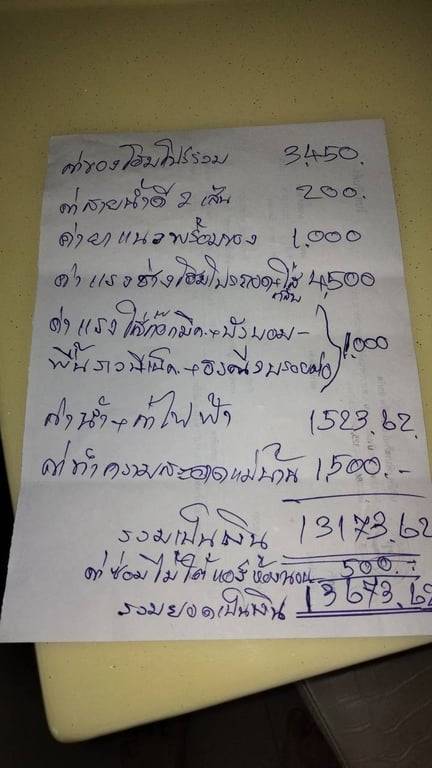 ค่าของโฮมโปรรวม 3,450.
ค่าสายน้ำดี 2 เส้น 200.
ค่ายาแนวพร้อมของ 1,000
ค่าแรงช่างโฮมโปรถอด+ใส่ 4,500
กลับ
ค่าแรงใส่ก๊อกมิก+บังบอม- 1,000
พื้น
ค่าน้ำ+ค่าไฟฟ้า 1523.62.
ค่าทำความสะอาดแม่บ้าน 1,500.-
รวมเป็นเงิน 13173.62
ค่าซ่อมไม้ใต้แอร์ห้องนอน 500.-
รวมยอดเป็นเงิน 13673.62